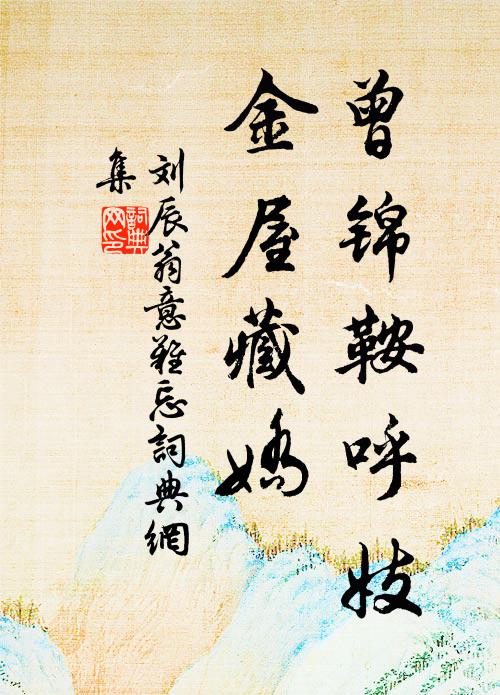 曾锦鞍呼妓
金屋藏娇
刘辰翁意难忘詞典網
集
詞典
网印